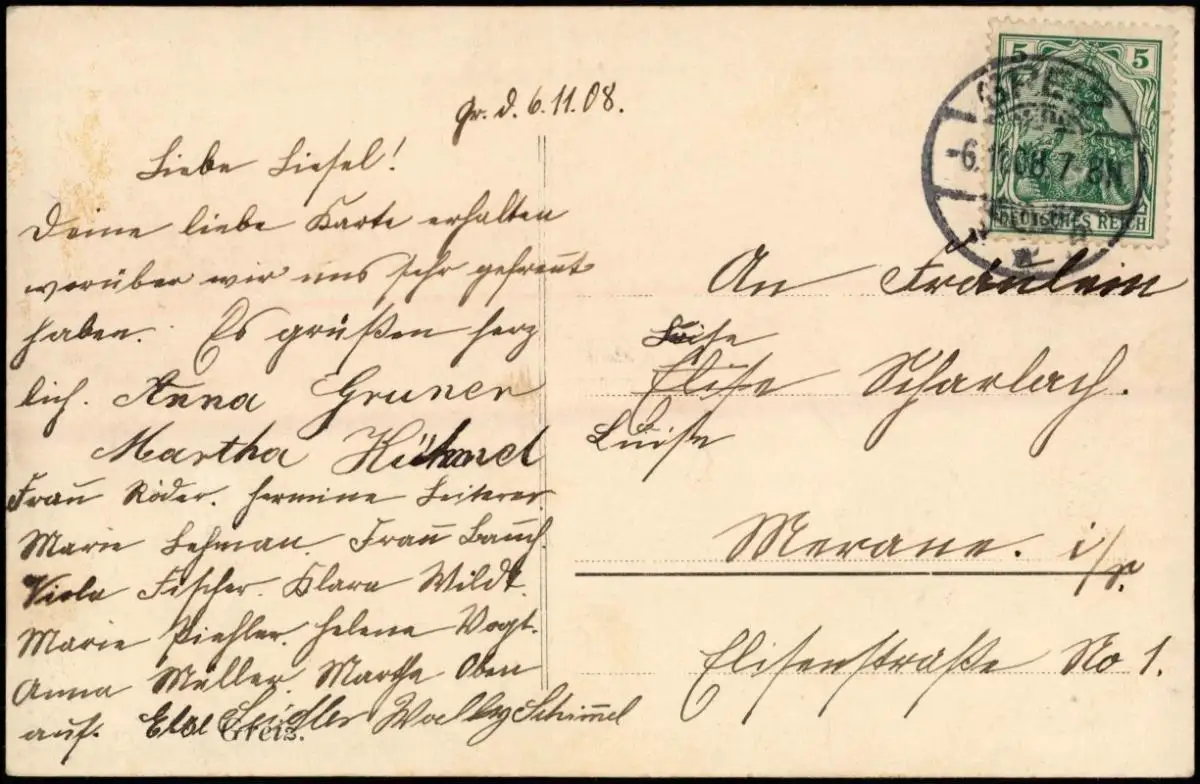 Gr. d. 6.11.08.
Liebe Liesel!
Deine liebe Karte erhalten
worüber wir uns sehr gefreut
haben. Es grüßen herz
lich. Anna Gruner
Martha Kühnel
Frau Röder. Hermine Leiterer
Marie Lehman. Frau Bauch
Viola Fischer. Klara Wildt.
Marie Piehler. Helene Vogt.
Anna Müller. Martha Oben
auf. Else Seidler Wally Schimmel
Greiz.
5 5
DEUTSCHES REICH
GREIZ
-6.11.08. 7-8N
An Fräulein
Luise
Elise Scharlach.
Luise
Merane. i/S.
Elisenstraße No 1.